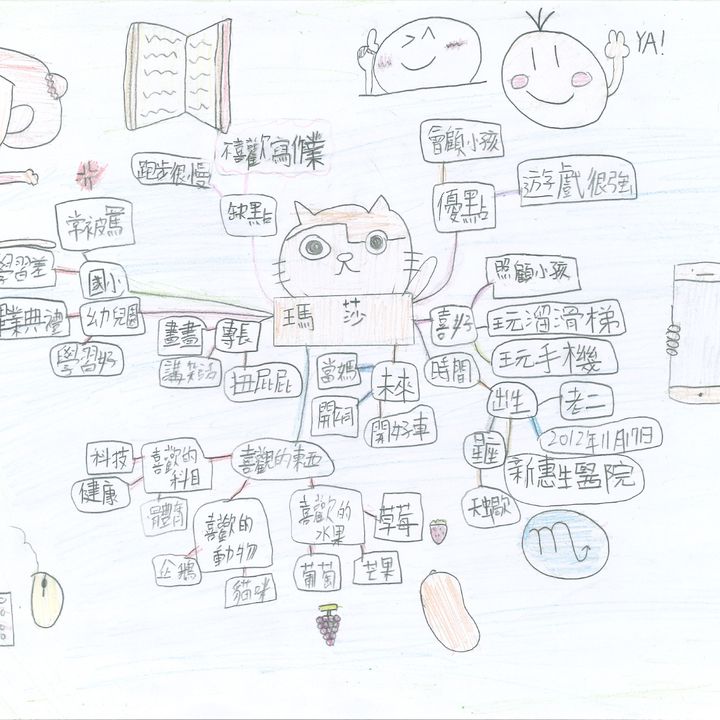 YA!
會顧小孩
不喜歡寫作業
跑步很慢
遊戲很強
優點
缺點
常被罵
學習差
國小
照顧小孩
瑪莎
喜好
玩溜滑梯
業典禮
幼兒園
畫畫
專長
學習好
玩手機
時間
當媽
未來
講笑話
扭屁屁
出生
老二
開好車
2012年11月17日
星座
科技
喜歡的
科目
喜觀的東西
新惠生醫院
健康
體育
天蠍
喜歡的
動物
喜歡的
水果
草莓
企鵝
貓咪
葡萄
芒果